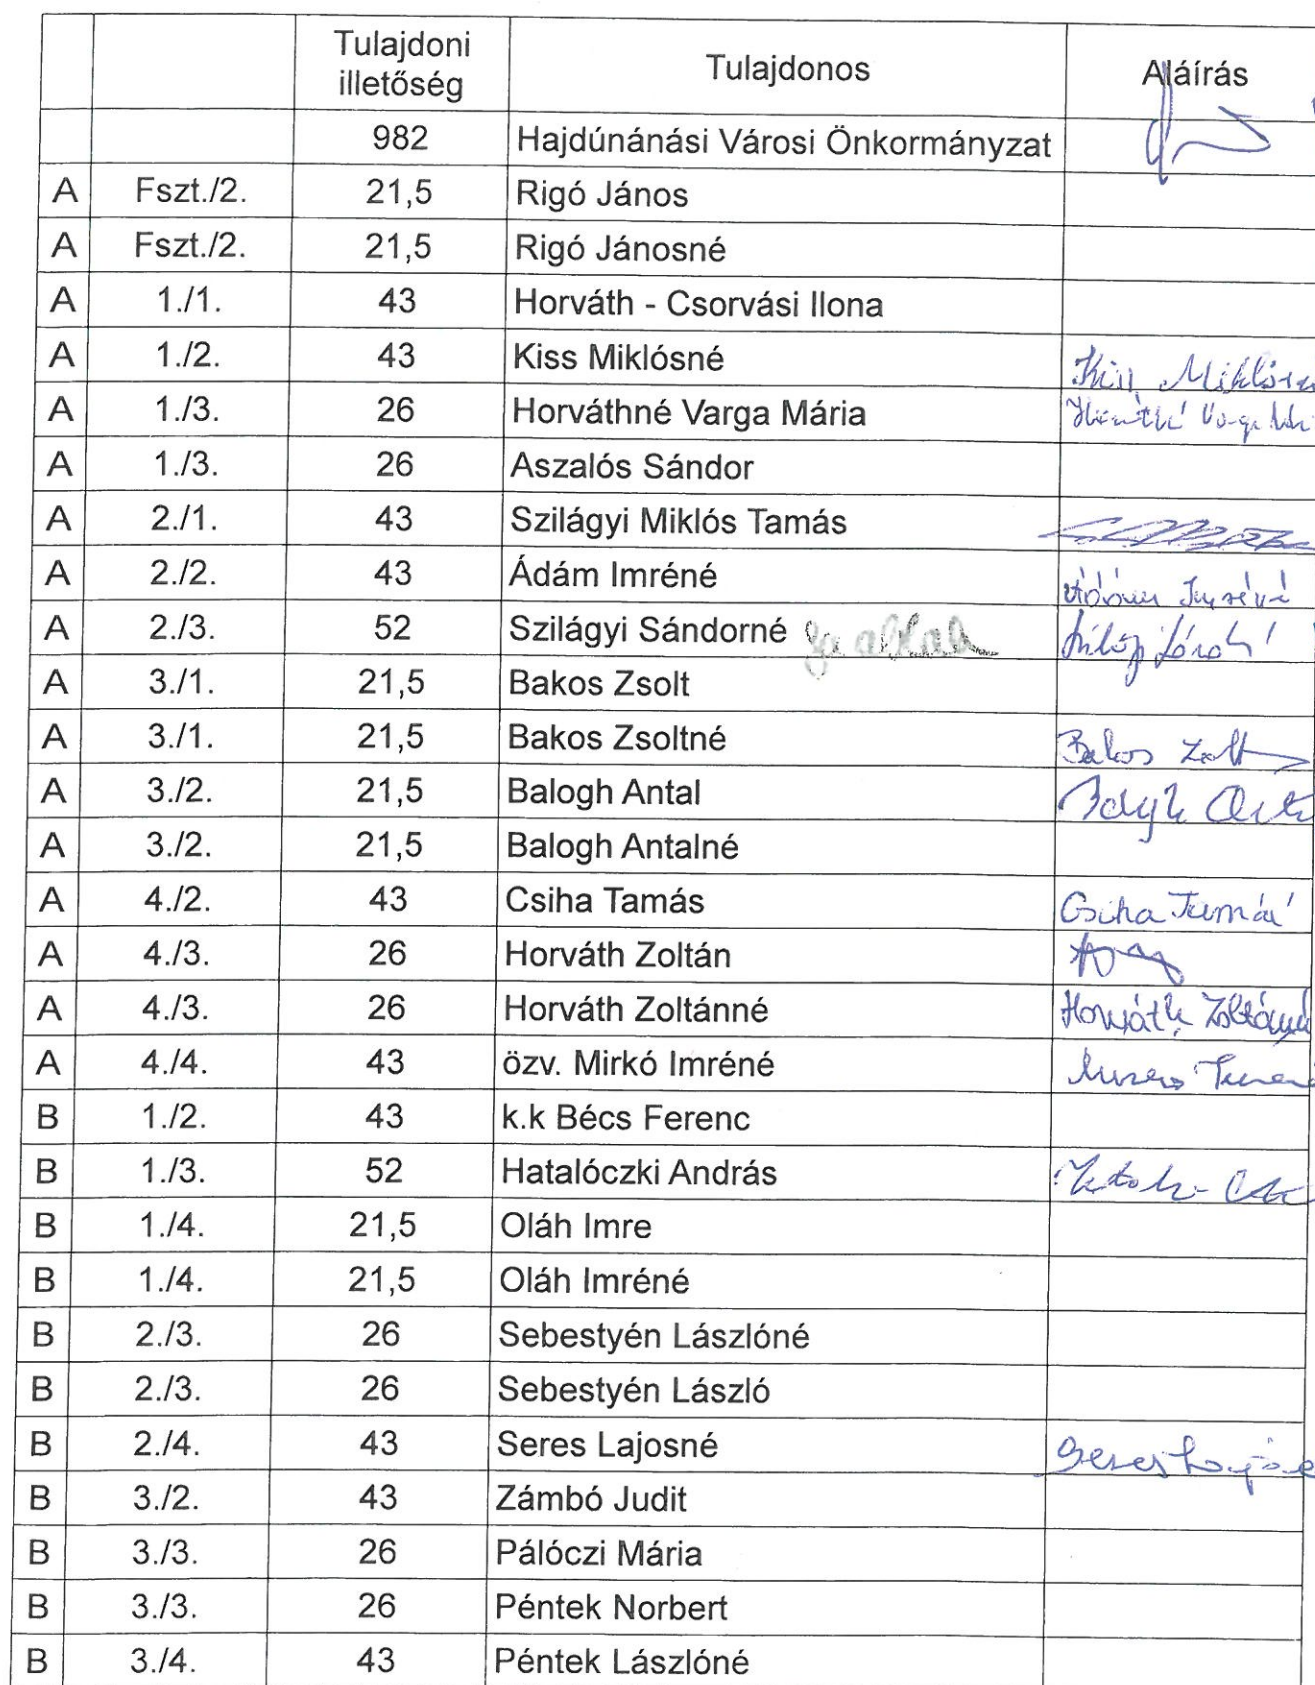 Tulajdoni illetőség Tulajdonos Aláírás
982 Hajdúnánási Városi Önkormányzat
A Fszt./2. 21,5 Rigó János
A Fszt./2. 21,5 Rigó Jánosné
A 1./1. 43 Horváth - Csorvási Ilona
A 1./2. 43 Kiss Miklósné Kiss Miklósné
A 1./3. 26 Horváthné Varga Mária
A 1./3. 26 Aszalós Sándor
A 2./1. 43 Szilágyi Miklós Tamás
A 2./2. 43 Ádám Imréné Ádám Imréné
A 2./3. 52 Szilágyi Sándorné
A 3./1. 21,5 Bakos Zsolt
A 3./1. 21,5 Bakos Zsoltné Bakos Zsolt
A 3./2. 21,5 Balogh Antal
A 3./2. 21,5 Balogh Antalné
A 4./2. 43 Csiha Tamás Csiha Tamás
A 4./3. 26 Horváth Zoltán
A 4./3. 26 Horváth Zoltánné Horváth Zoltánné
A 4./4. 43 özv. Mirkó Imréné
B 1./2. 43 k.k Bécs Ferenc
B 1./3. 52 Hatalóczki András
B 1./4. 21,5 Oláh Imre
B 1./4. 21,5 Oláh Imréné
B 2./3. 26 Sebestyén Lászlóné
B 2./3. 26 Sebestyén László
B 2./4. 43 Seres Lajosné Seres Lajosné
B 3./2. 43 Zámbó Judit
B 3./3. 26 Pálóczi Mária
B 3./3. 26 Péntek Norbert
B 3./4. 43 Péntek Lászlóné